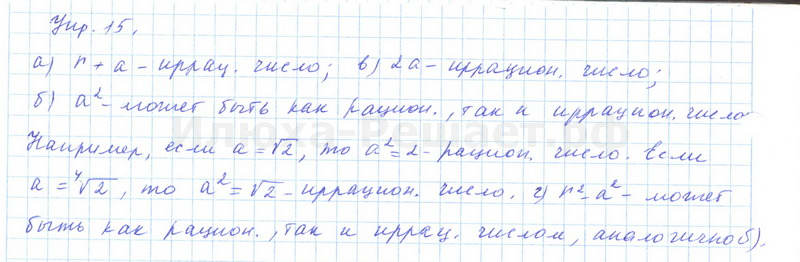 Упр. 15.
а) r + a – иррац. число; в) 2a – иррацион. число;
б) a² – может быть как рацион., так и иррацион. число
Например, если a = √2, то a² = 2 – рацион. число. Если
a = ⁴√2, то a² = √2 – иррацион. число. г) r² – a² – может
быть как рацион., так и иррац. числом, аналогично б).
Илюха-Решает.рф